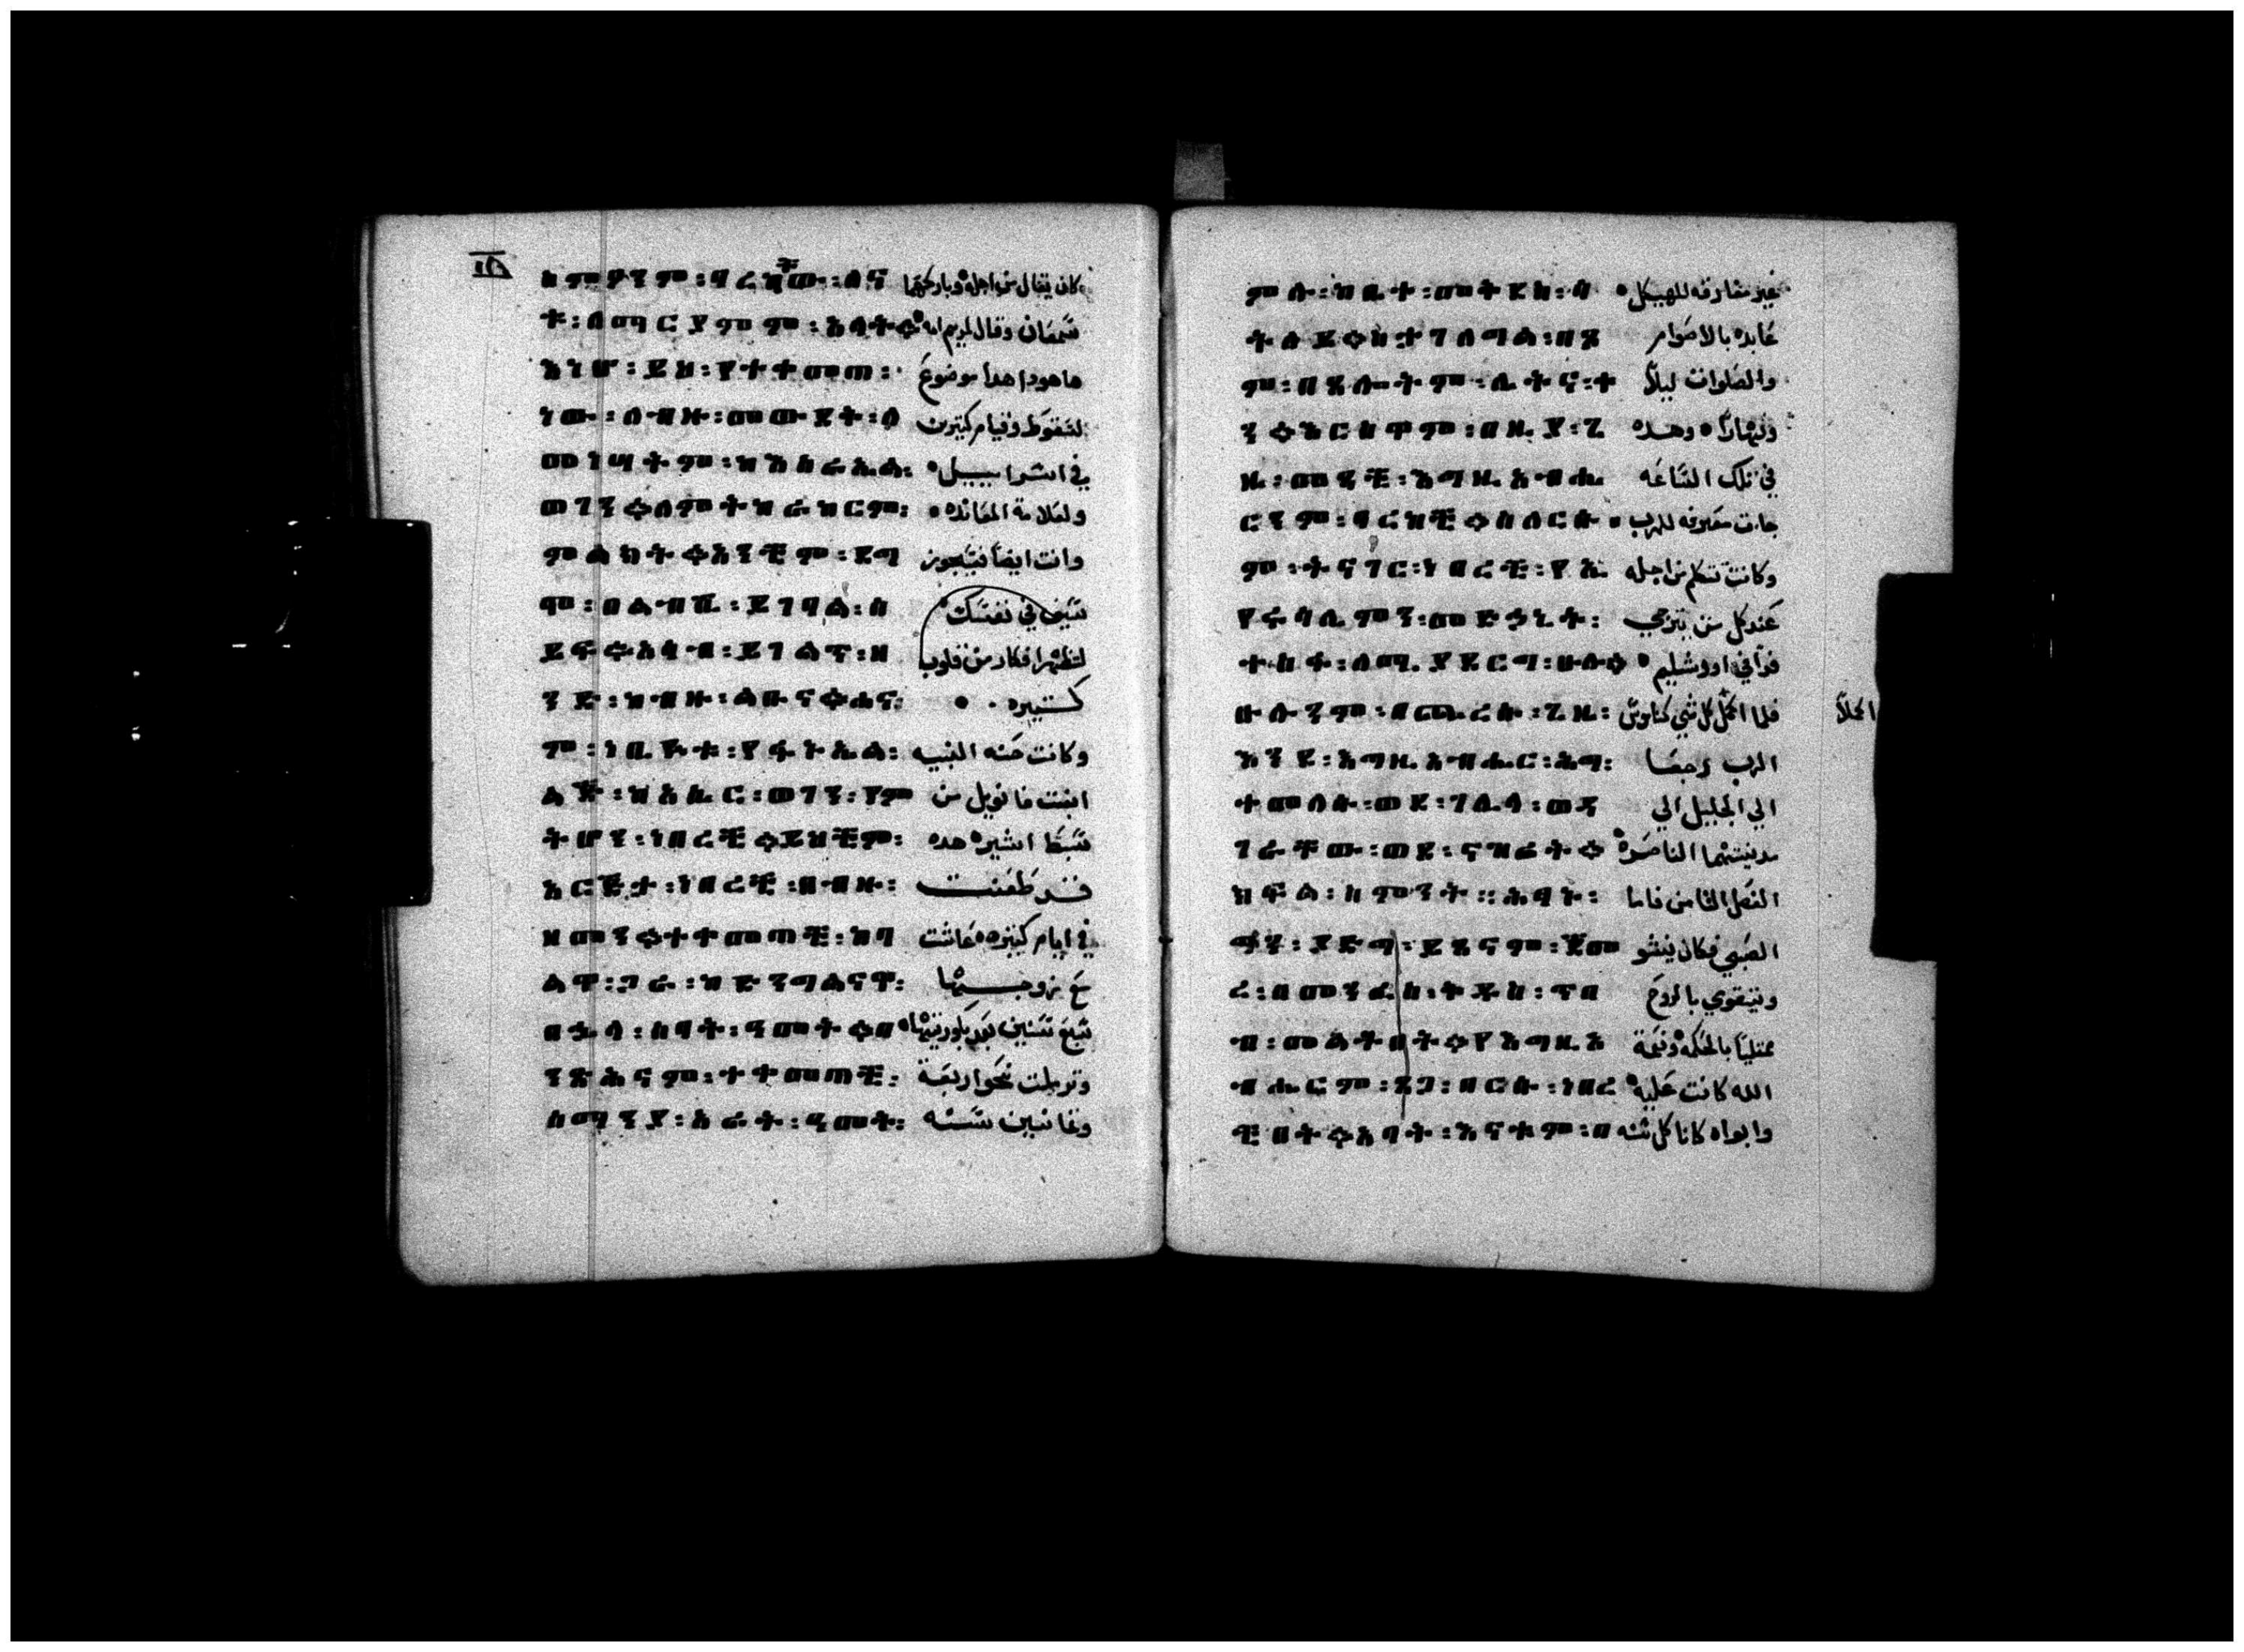 ስምዖንም፡ባረካቸው፡ለና كان يقال من اجله وباركهما
ት፡ለማርያምም፡አላት። سمعان وقال لمريم امه
እነሆ፡ይህ፡የተቀመጠ፡ ها هودا هدا موضوع
ነው፡ለብዙ፡መውደቅ፡ለ لسقوط وقيام كثيرين
መነሣትም፡ከእስራኤል፡ في اسراييل
ወገን።ለምትከራከርም፡ ولعلامة المعانده
ምልክት።አንቺም፡ደግ وانت ايضا فيجوز
ሞ፡በልብሽ፡ይገባል፡ሰ سيف في نفسك
ይፍ።አሳብ፡ይገልጥ፡ዘ لتظهر افكار من قلوب
ንድ፡ከብዙ፡ልቡና።ሐና كثيره
ም፡ነቢዪቱ፡የፋኑኤል፡ وكانت حنه النبيه
ልጅ፡ከአሴር፡ወገን፡የም ابنت فانويل من
ትሆን፡ነበረች።ይህችም፡ سبط اشير هده
አርጅታ፡ነበረች፡በብዙ፡ قد طعنت
ዘመን።ተቀመጠች፡ከባ في ايام كثيره عاشت
ልዋ፡ጋራ፡ከድንግልናዋ፡ مع زوجها
በኋላ፡ሰባት፡ዓመት።በ سبع سنين بعد بكوريتها
ንጽሕናም፡ተቀመጠች፡ وترملت نحو اربعة
ሰማንያ፡አራት፡ዓመት፡ وثمانين سنه
ምሉ፡ከቤተ፡መቅደስ፡ሳ غير مفارقه للهيكل
ትለይ።ስታገለግል፡በጾ عابده بالاصوام
ም፡በጸሎትም፡ሌትና፡ቀ والصلوات ليلا
ን።እርስዋም፡በዚያ፡ጊ ونهارا وهده
ዜ፡መጣች፡እግዚአብሔ في تلك الساعه
ርንም፡ባረከች።ስለርሱ جات معترفه للرب
ም፡ትናገር፡ነበረች፡የኢ وكانت تتكلم من اجله
የሩሳሌምን፡መድኃኒት፡ عند كل من يترجي
ተስፋ፡ለሚያደርግ፡ሁሉ። في اورشليم
ሁሉንም፡በጨረሱ፡ጊዜ፡ فلما اكمل كل شي كناموس
እንደ፡እግዚአብሔር፡ሕግ፡ الرب رجعا
ተመለሱ፡ወደ፡ገሊላ፡ወደ الي الجليل الي
ገራቸው፡ወደ፡ናዝሬት። مدينتهما الناصره
ክፍል፡ስምንት።ሕፃኑ፡ الفصل الثامن فاما
ግን፡ያድግ፡ይጸናም፡ጀመ الصبي فكان ينشو
ረ፡በመንፈስ፡ቅዱስ፡ጥበ ويتقوي بالروح
ብ፡መልቶበት።የእግዚአ ممتليا بالحكمه ونعمة
ብሔርም፡ጸጋ፡በርሱ፡ነበረ الله كانت عليه
ችበት።አባት፡እናቱም፡በ وابواه كانا كل سنه